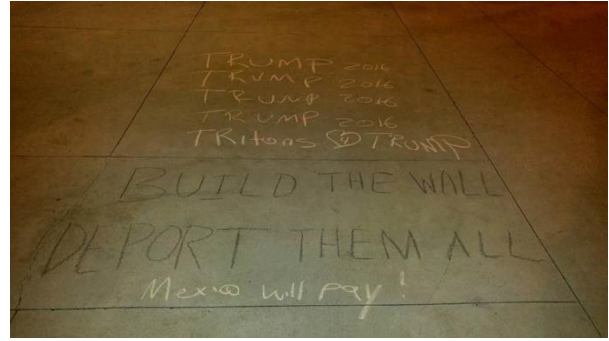 TRUMP 2016
TRUMP 2016
TRUMP 2016
TRUMP 2016
TRitons TRUMP
BUILD THE WALL
DEPORT THEM ALL
Mexico will pay!